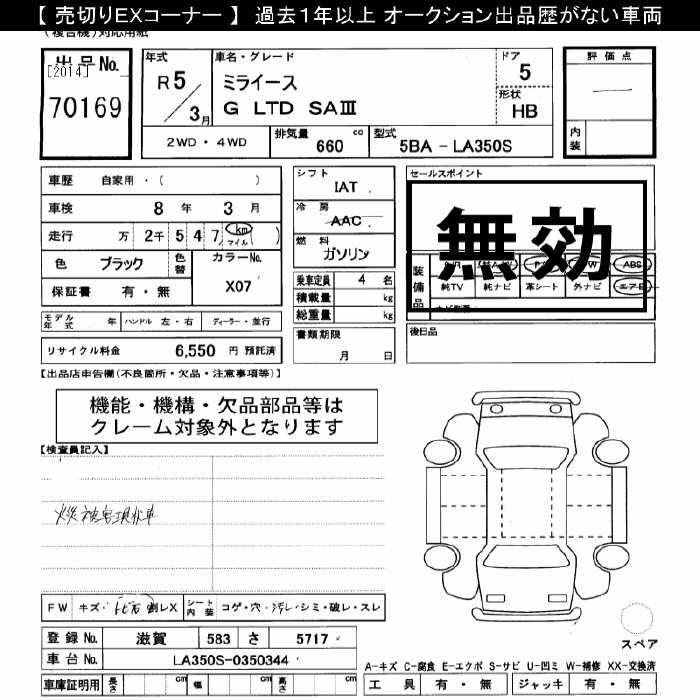 【 売切りEXコーナー 】 過去１年以上 オークション出品歴がない車両
(複合機)対応用紙
出品No.
[2014]
70169
年式
R5/3月
車名・グレード
ミライース
G LTD SAⅢ
ドア
5
形状
HB
2WD・4WD
排気量 660 cc
型式 5BA - LA350S
評価点
—
内装
車歴 自家用・( )
車検 8年 3月
走行 万 2千 5 4 7 km マイル ( )
色 ブラック 色替
カラーNo.
X07
保証書 有・無
モデル年式 年 ハンドル 左・右 ディーラー・並行
リサイクル料金 6,550 円 預託済
シフト
IAT
冷房
AAC
燃料
ガソリン
乗車定員 4 名
積載量 kg
総重量 kg
書類期限
月 日
セールスポイント
無効
装備品
ABS
純TV 純ナビ 革シート 外ナビ エアB
後日品
【出品店申告欄(不良箇所・欠品・注意事項等)】
機能・機構・欠品部品等は
クレーム対象外となります
【検査員記入】
火災被害現状車
FW キズ・トビ石 割レX シート内装 コゲ・穴・汚レ・シミ・破レ・スレ
登録No. 滋賀 583 さ 5717
車台No. LA350S-0350344
車庫証明用 長さ cm 幅 cm 高さ cm
スペア
A-キズ C-腐食 E-エクボ S-サビ U-凹ミ W-補修 XX-交換済
工具 有・無 ジャッキ 有・無